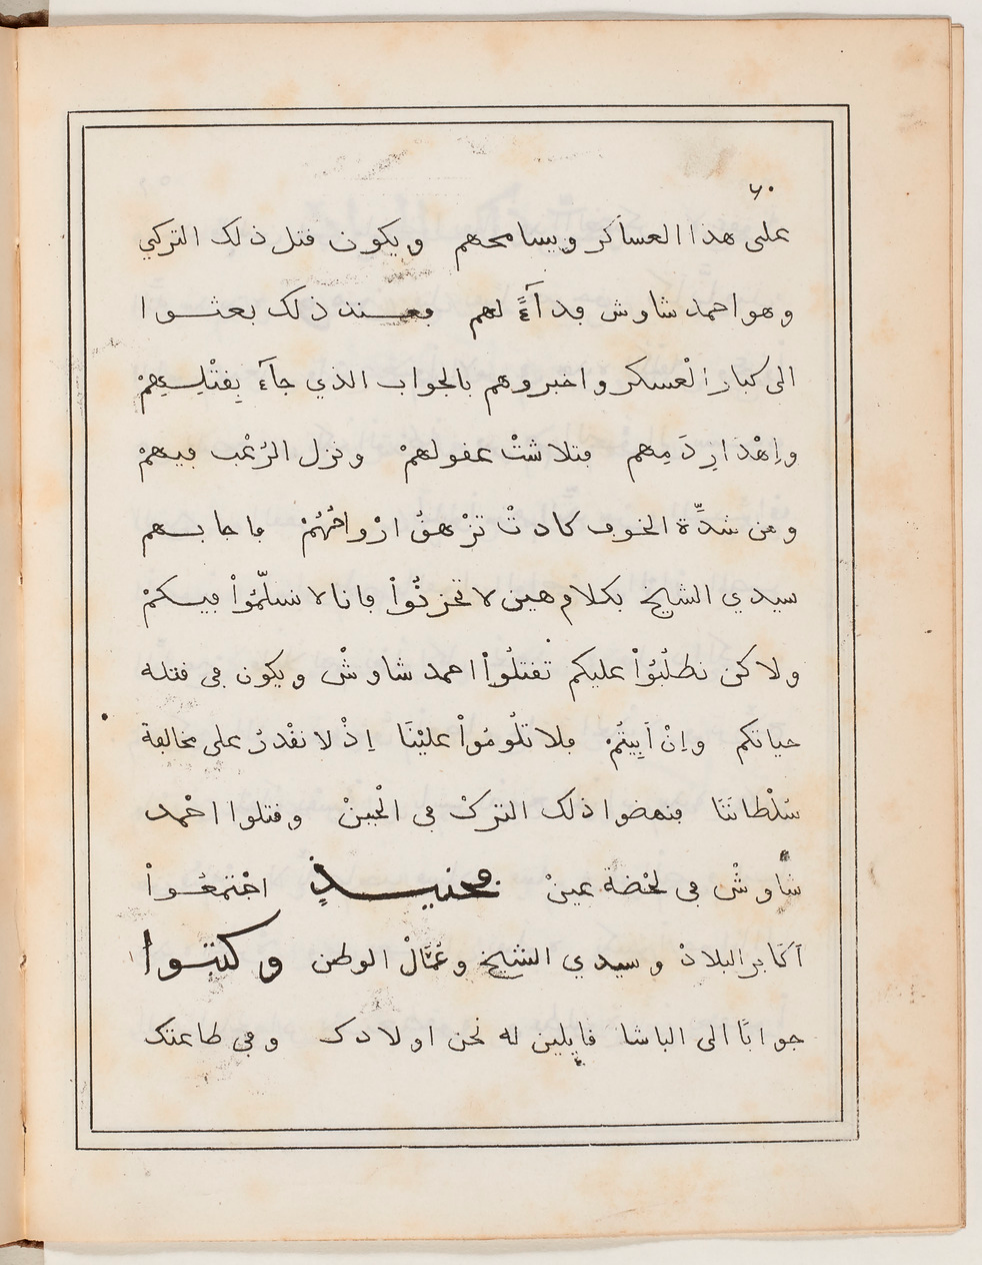 ٦٠
على هذا العساكر ويسامحهم ويكون قتل ذلك التركي
وهو احمد شاوش فدآءً لهم فعند ذلك بعثوا
الى كبار الْعسكر واخبروهم بالجواب الذي جآءَ بِقتْلِهِمْ
واِهْدَارِ دَمِهم فتلاشتْ عقولهمْ ونزل الرُعْب فيهمْ
ومن شدِّة الخوف كادتْ تزْهقُ ارْواحُهُمْ فاجابهم
سيدي الشيخ بكلام هين لا تحزنُواْ فانا لا نسلّمُواْ فيكمْ
ولاكن نطلُبُواْ عليكم تقتلُواْ احمد شاوشْ ويكون في قتله
حياتكم واِنْ اَبيتُمْ فلا تلُومُواْ عليْنَا اِذْ لا نقْدرُ على مخالفة
سُلْطاننَا فنهضوا ذلك التركْ في الْحِينْ وقتلوا احْمد
شاوشْ في لحْضة عينْ فحنيــذٍ اجْتمعُواْ
اَكَابر البلادْ وسيدي الشيخ وعُمَّالْ الوطن وكتبوا
جوابًا الى الباشا قايلين له نحن اولادك وفي طاعتك